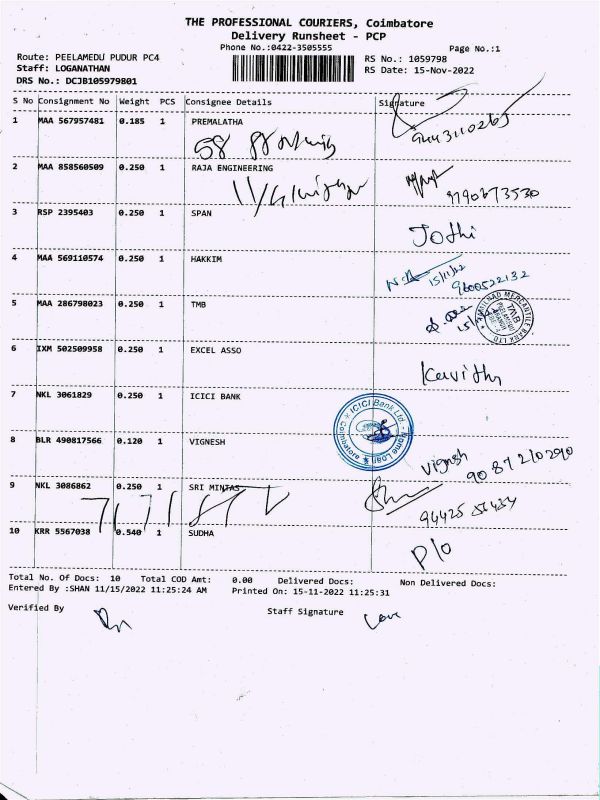 THE PROFESSIONAL COURIERS, Coimbatore
Delivery Runsheet - PCP
Phone No.:0422-3505555
Page No.:1
Route: PEELAMEDU PUDUR PC4
RS No.: 1059798
Staff: LOGANATHAN
RS Date: 15-Nov-2022
DRS No.: DCJB105979801
S No Consignment No Weight PCS Consignee Details Signature
1 MAA 567957481 0.185 1 PREMALATHA
58
2 MAA 858560509 0.250 1 RAJA ENGINEERING
9790673530
3 RSP 2395403 0.250 1 SPAN
Jothi
4 MAA 569110574 0.250 1 HAKKIM
15/11/22
9600522132
5 MAA 286798023 0.250 1 TMB
TAMILNAD MERCANTILE BANK LTD
TMB
6 IXM 502509958 0.250 1 EXCEL ASSO
Kavitha
7 NKL 3061829 0.250 1 ICICI BANK
ICICI Bank Ltd - Home Loan
Coimbatore
8 BLR 490817566 0.120 1 VIGNESH
Vignesh
9087210290
9 NKL 3086862 0.250 1 SRI MINTAS
10 KRR 5567038 0.540 1 SUDHA
P/o
Total No. Of Docs: 10 Total COD Amt: 0.00 Delivered Docs: Non Delivered Docs:
Entered By :SHAN 11/15/2022 11:25:24 AM Printed On: 15-11-2022 11:25:31
Verified By Staff Signature